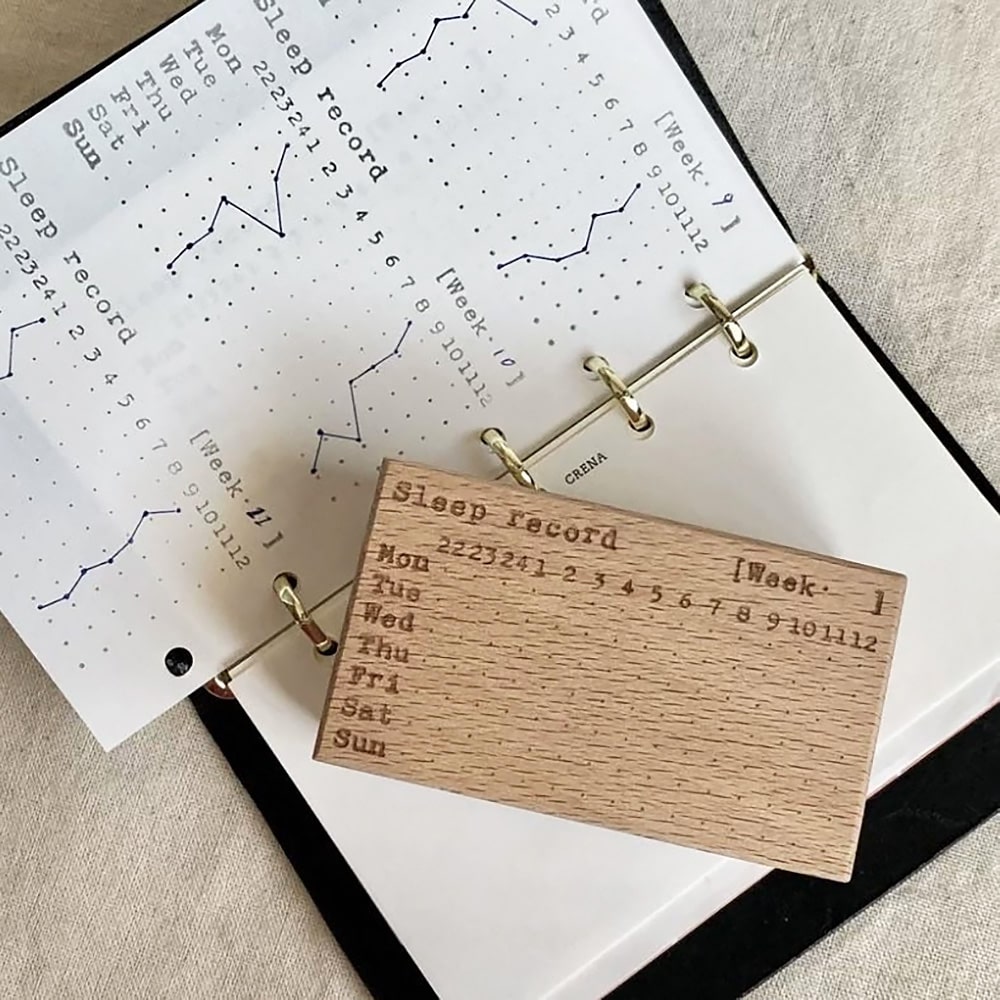 rd
2 3 4 5 6 7 8 9 10 11 12
[Week· 9 ]
Sleep record
22 23 24 1 2 3 4 5 6 7 8 9 10 11 12
[Week· 10 ]
Mon
Tue
Wed
Thu
Fri
Sat
Sun
Sleep record
22 23 24 1 2 3 4 5 6 7 8 9 10 11 12
[Week· 11 ]
CRENA
Sleep record
[Week· ]
22 23 24 1 2 3 4 5 6 7 8 9 10 11 12
Mon
Tue
Wed
Thu
Fri
Sat
Sun